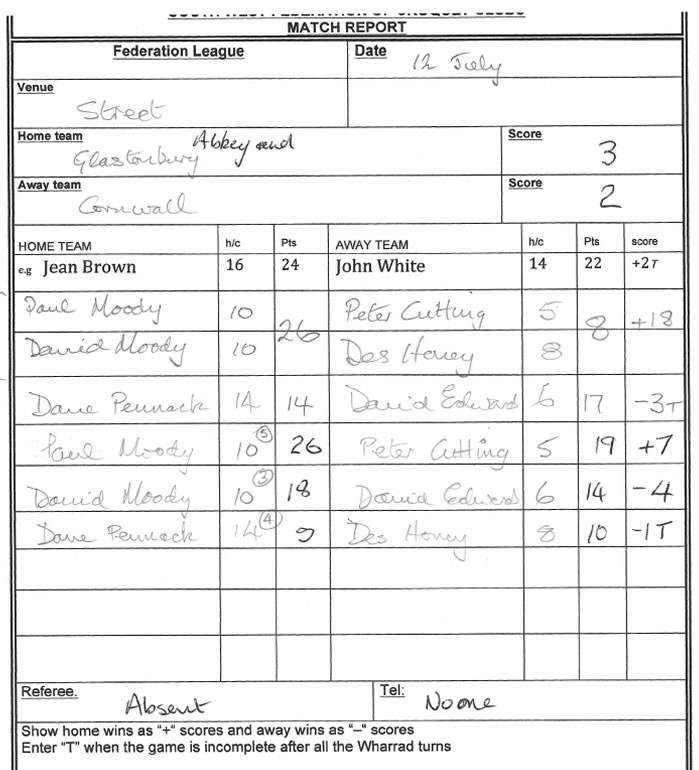 MATCH REPORT
Federation League Date 12 July
Venue
Street
Home team Abbey and Score
Glastonbury 3
Away team Score
Cornwall 2
HOME TEAM h/c Pts AWAY TEAM h/c Pts score
e.g Jean Brown 16 24 John White 14 22 +2T
Paul Moody 10 26 Peter Cutting 5 8 +18
David Moody 10 Des Honey 8
Dave Pennack 14 14 David Edward 6 17 -3T
Paul Moody 10 (5) 26 Peter Cutting 5 19 +7
David Moody 10 (3) 18 David Edward 6 14 -4
Dave Pennack 14 (4) 9 Des Honey 8 10 -1T
Referee. Absent Tel: No one
Show home wins as "+" scores and away wins as "–" scores
Enter "T" when the game is incomplete after all the Wharrad turns